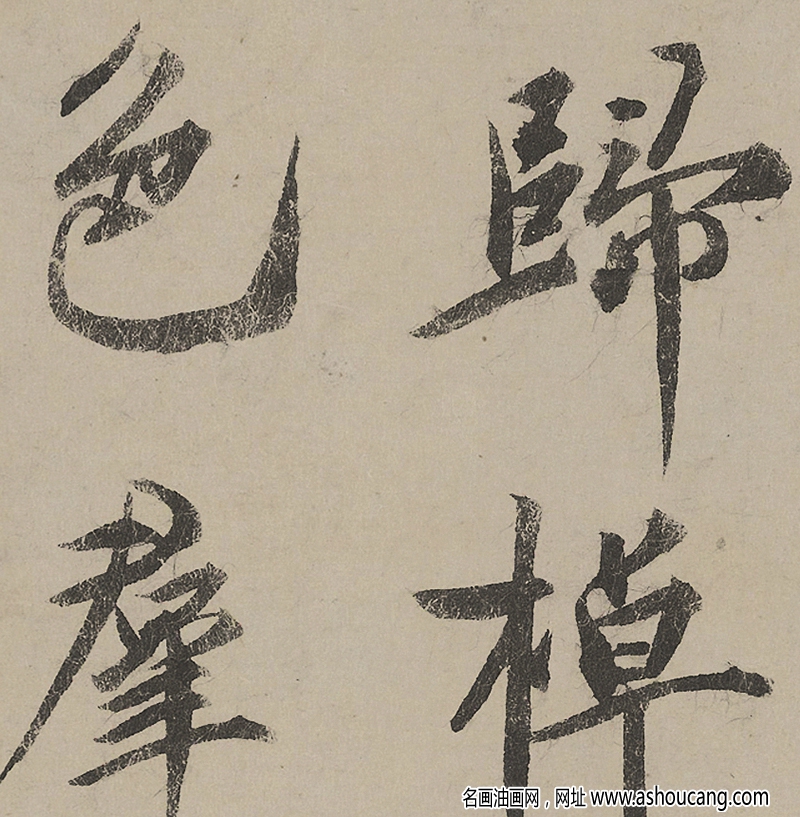 歸棹
色羣
名画油画网，网址 www.ashoucang.com